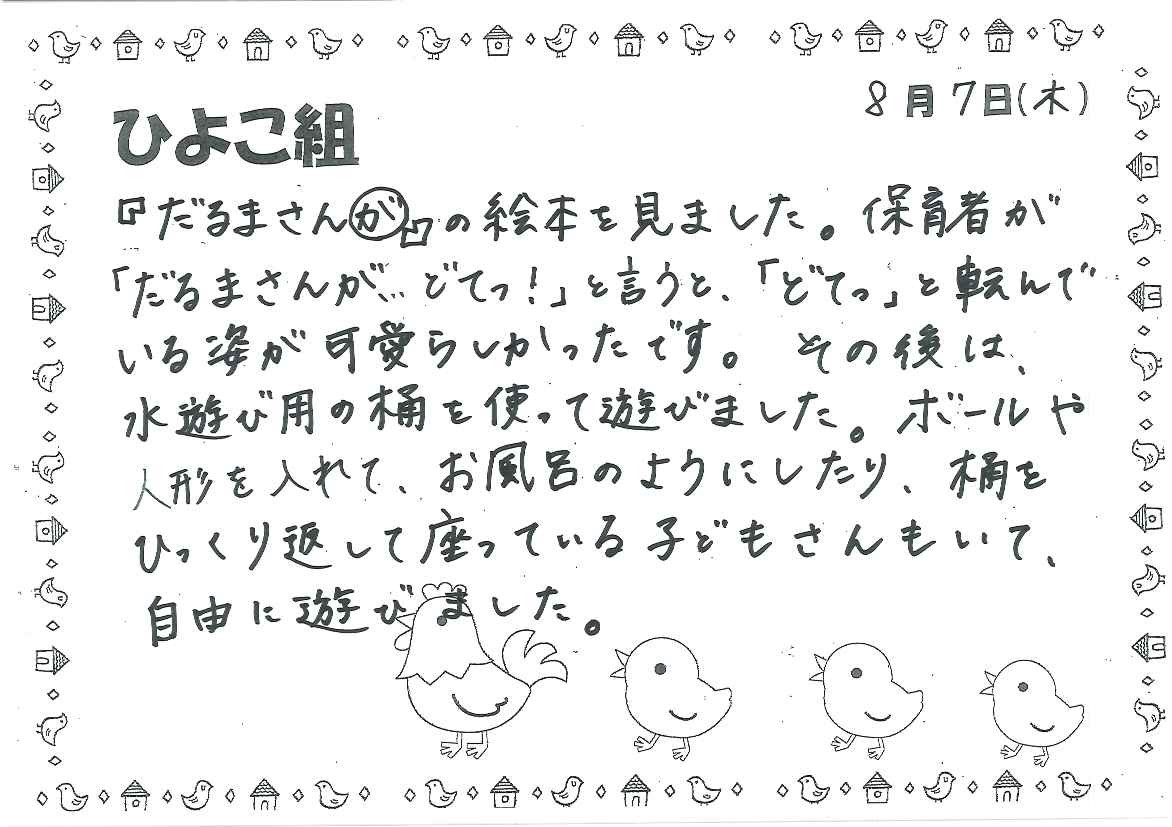 8月7日(木)
ひよこ組
『だるまさんが』の絵本を見ました。保育者が
「だるまさんが…どてっ!」と言うと、「どてっ」と転んで
いる姿が可愛らしかったです。 その後は、
水遊び用の桶を使って遊びました。ボールや
人形を入れて、お風呂のようにしたり、桶を
ひっくり返して座っている子どもさんもいて、
自由に遊びました。